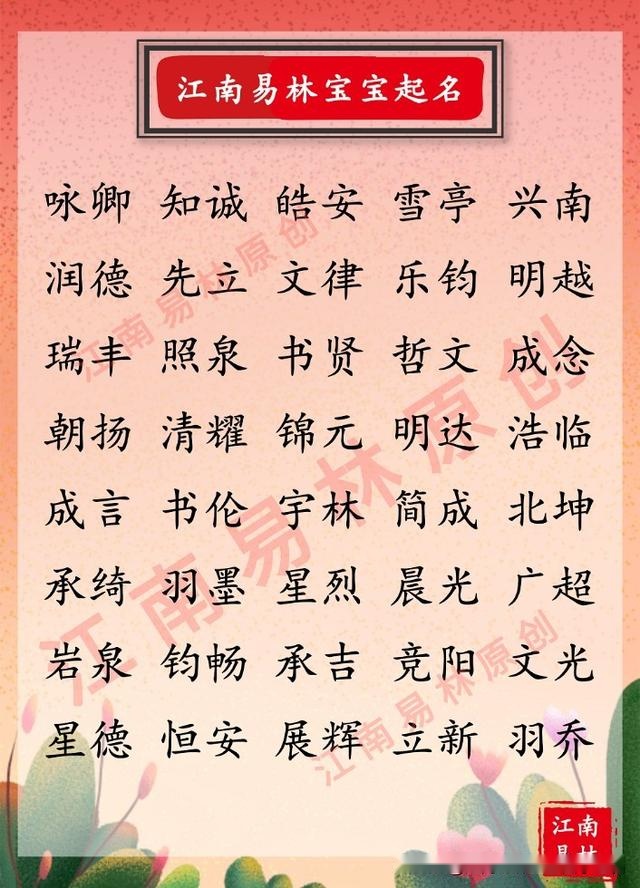 江南易林宝宝起名
咏卿 知诚 皓安 雪亭 兴南
润德 先立 文律 乐钧 明越
瑞丰 照泉 书贤 哲文 成念
朝扬 清耀 锦元 明达 浩临
成言 书伦 宇林 简成 北坤
承绮 羽墨 星烈 晨光 广超
岩泉 钧畅 承吉 竞阳 文光
星德 恒安 展辉 立新 羽乔
江南易林原创
江南易林原创
江南易林原创
江南
易林